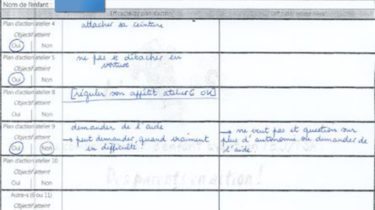 Nom de l'enfant:
Plan d'action atelier 4
attacher sa ceinture
Objectif atteint
Oui Non
Plan d'action atelier 5
ne pas se détacher en
voiture
Objectif atteint
Oui Non
Plan d'action atelier 8
[réguler son appétit atelier 6 OK]
Objectif atteint
Oui Non
Plan d'action atelier 9
demander de l'aide
→ peut demander quand vraiment
en difficulté
→ ne veut pas et question sur
plus d'autonomie ou demander de
l'aide
Objectif atteint
Oui Non
Plan d'action atelier 10
Objectif atteint
Oui Non
Autre-s (6 ou 11)
Objectif atteint
Des parents en action!